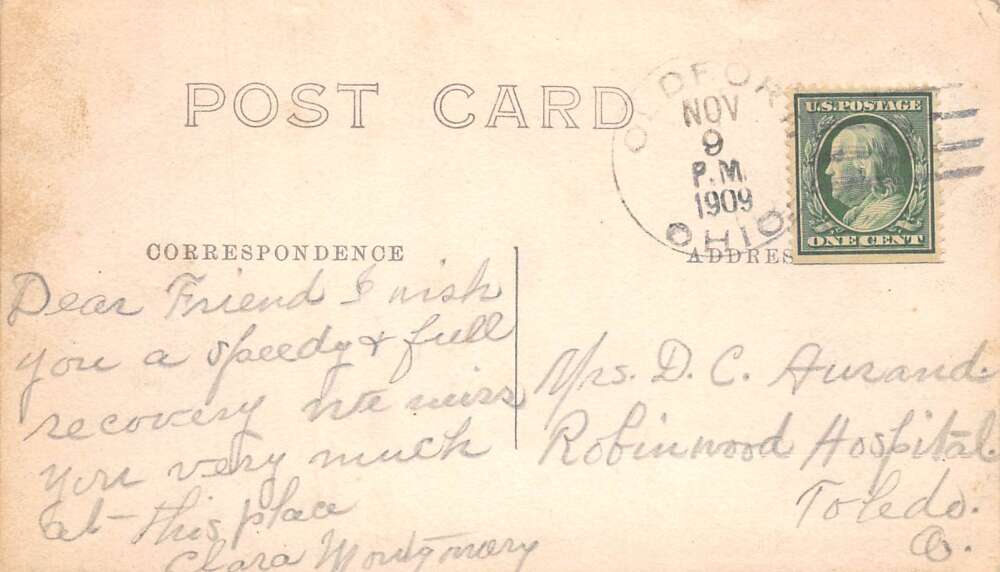 POST CARD
OLDFORT
NOV
9
P.M.
1909
OHIO
U.S. POSTAGE
ONE CENT
CORRESPONDENCE
ADDRES
Dear Friend I wish
you a speedy & full
recovery We miss
you very much
at this place
Clara Montgomery
Mrs. D. C. Aurand.
Robinwood Hospital.
Toledo.
O.